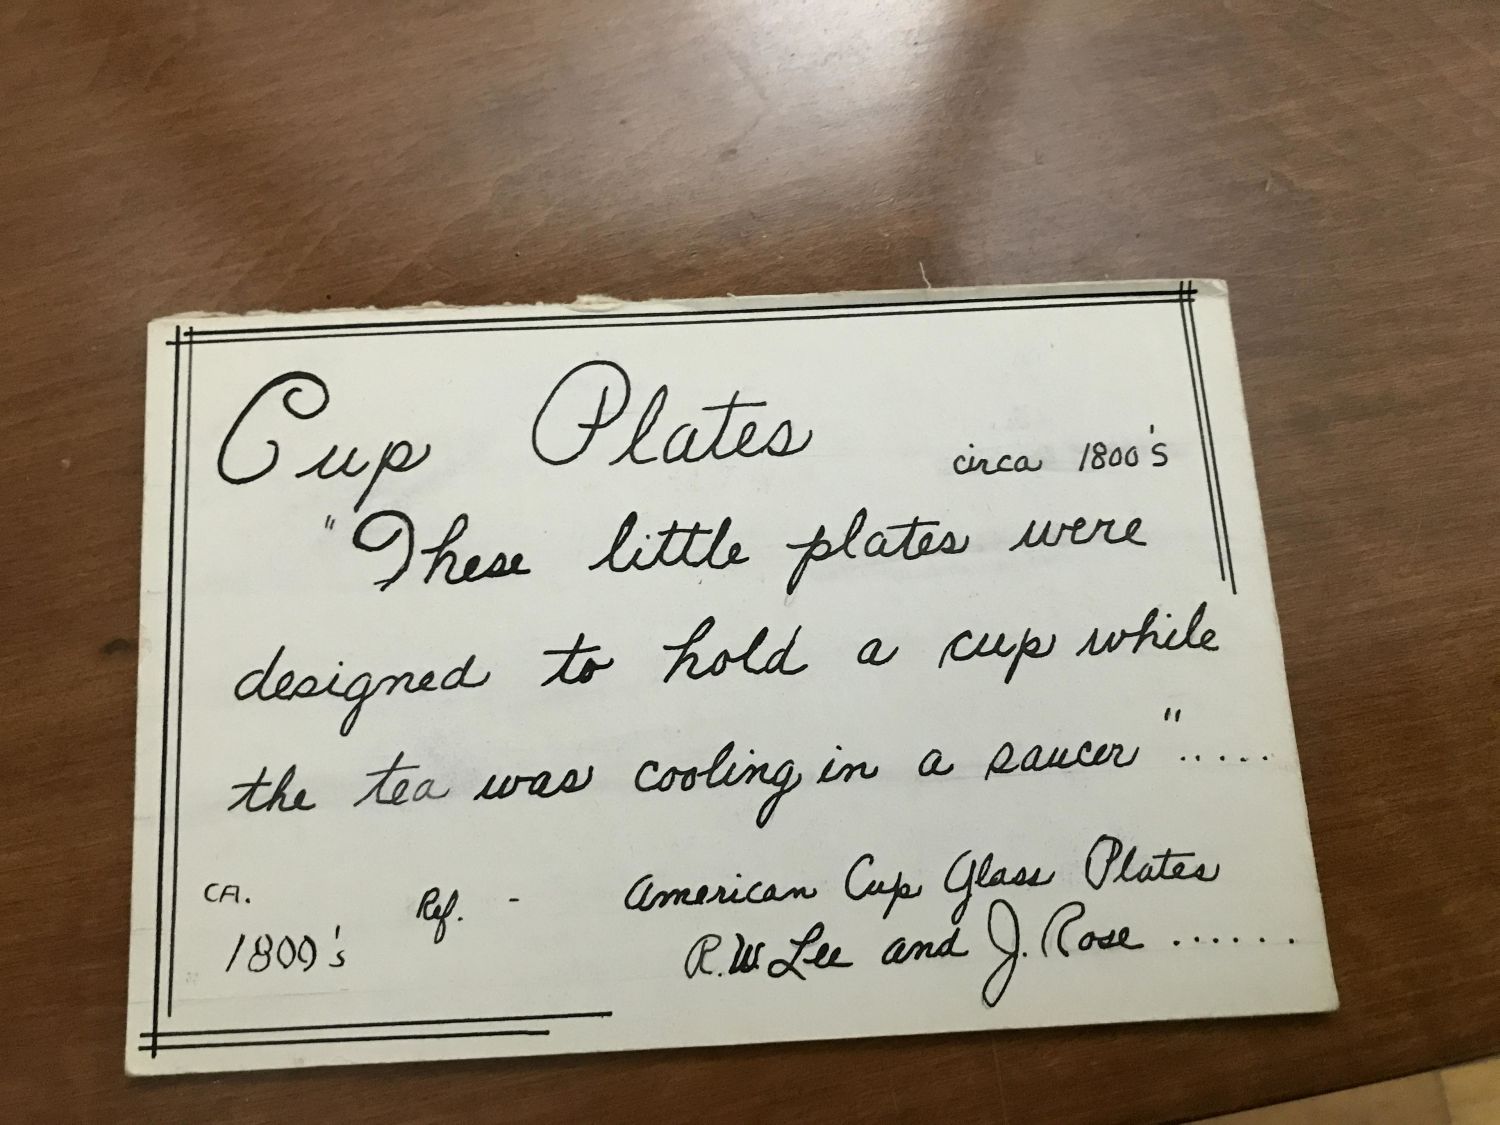 Cup Plates circa 1800's
"These little plates were
designed to hold a cup while
the tea was cooling in a saucer".....
CA. Ref. - American Cup Glass Plates
1800's R.W. Lee and J. Rose ......